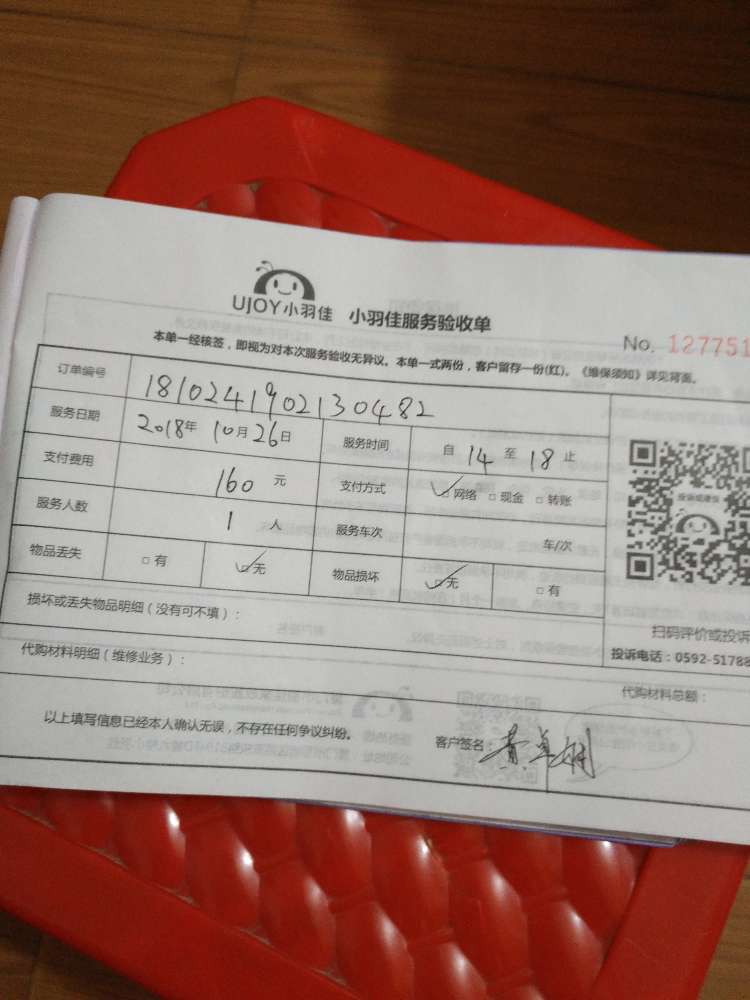 UJOY小羽佳 小羽佳服务验收单
No. 127751
本单一经核签，即视为对本次服务验收无异议。本单一式两份，客户留存一份(红)。《维保须知》详见背面。
订单编号 1810241902130482
服务日期 2018年 10月26日 服务时间 自 14 至 18 止
支付费用 160 元 支付方式 ☑网络 □现金 □转账
服务人数 1 人 服务车次 车/次
物品丢失 □有 ☑无 物品损坏 ☑无 □有
投诉或建议
损坏或丢失物品明细（没有可不填）：
扫码评价或投诉
投诉电话：0592-51788
代购材料明细（维修业务）：
代购材料总额：
以上填写信息已经本人确认无误，不存在任何争议纠纷。
客户签名：黄